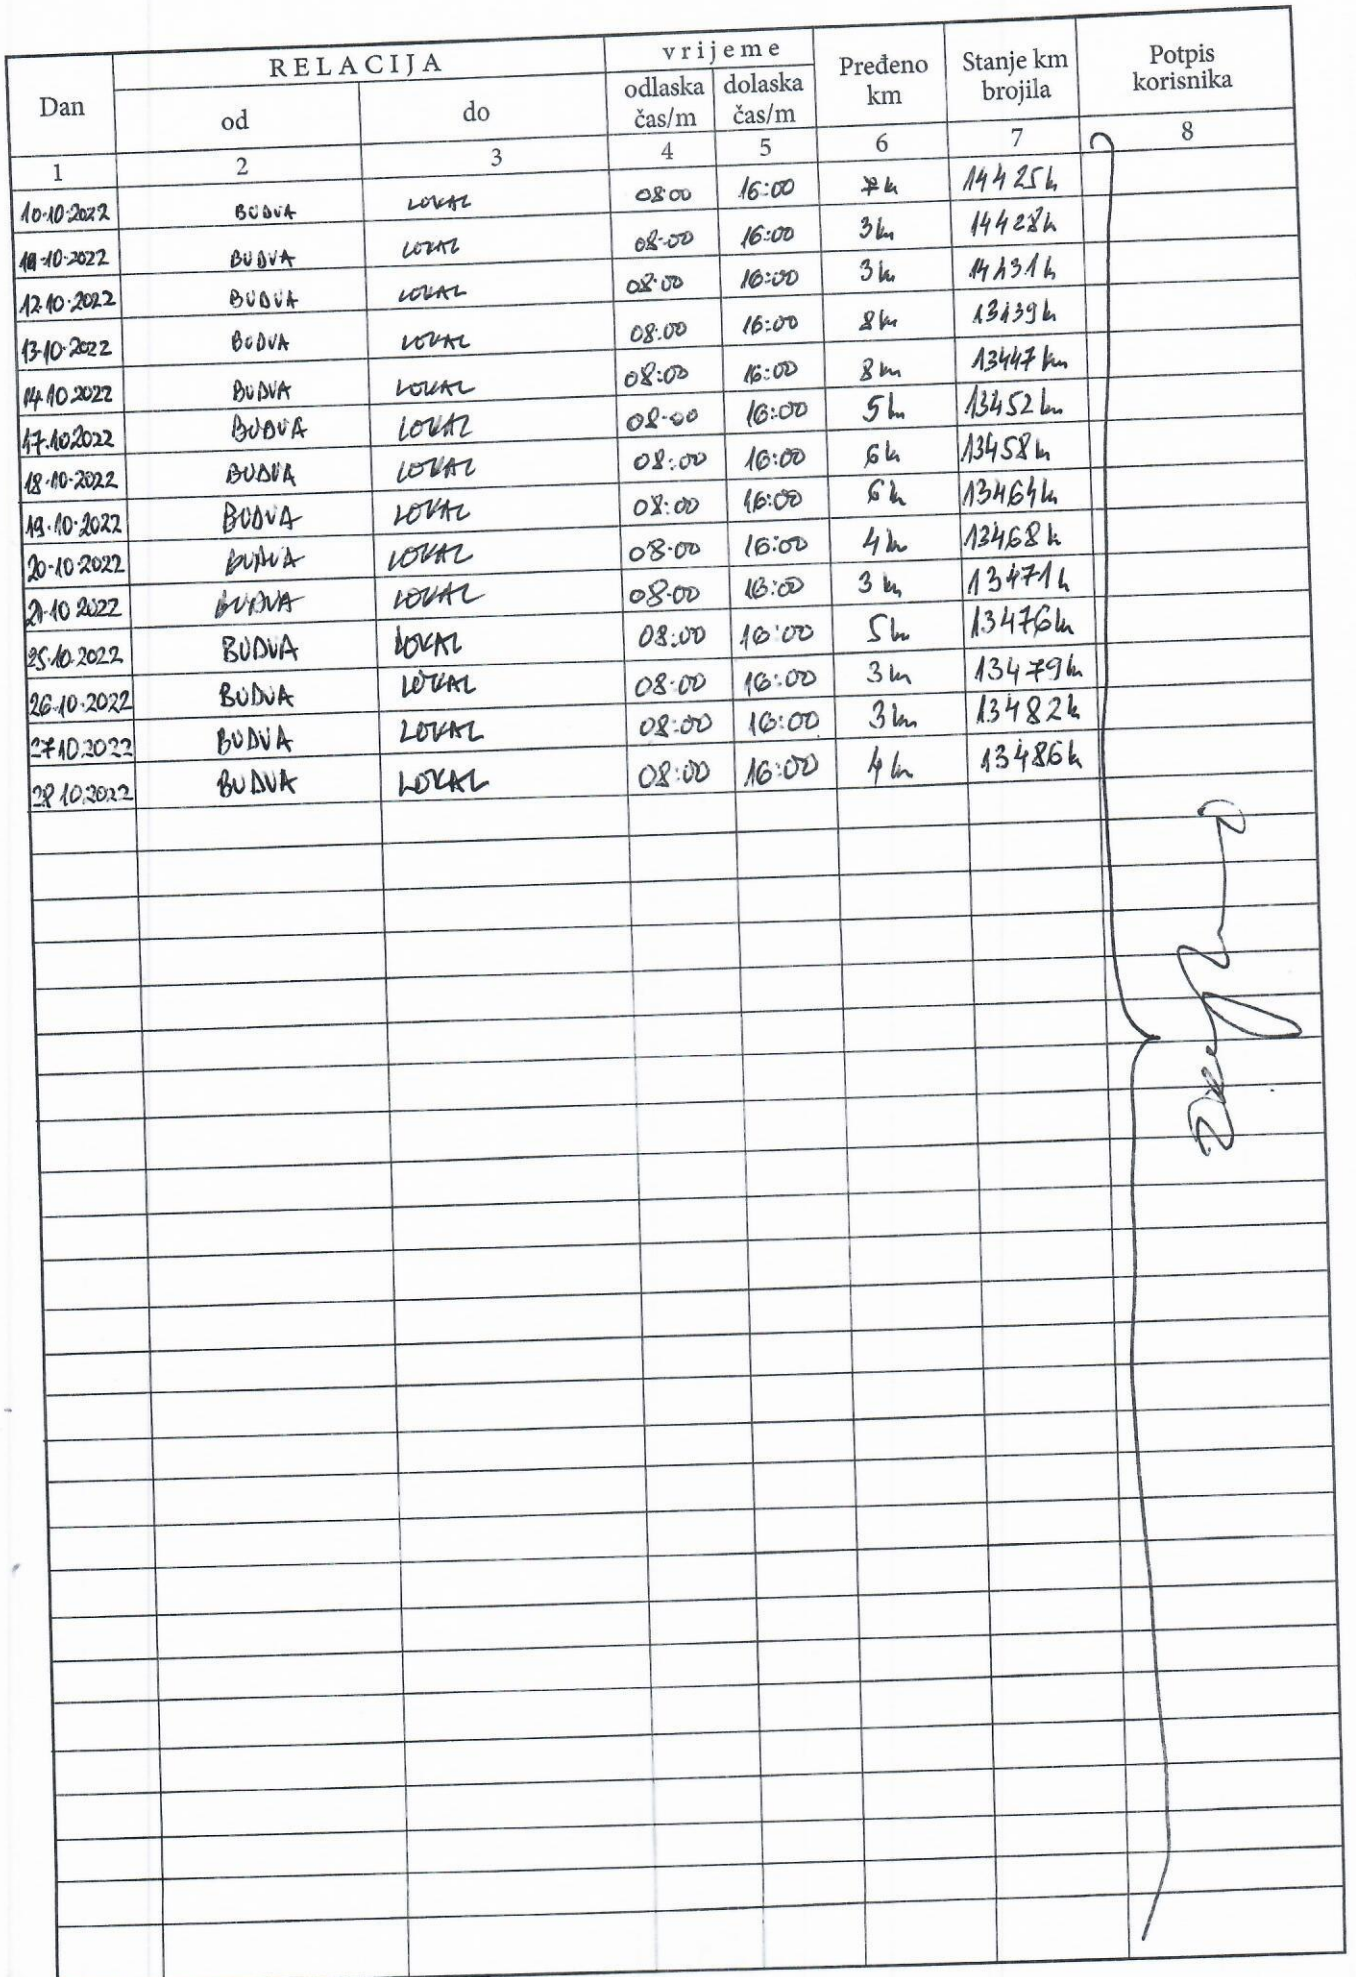 Dan RELACIJA vrijeme Pređeno km Stanje km brojila Potpis korisnika
od do odlaska čas/m dolaska čas/m
1 2 3 4 5 6 7 8
10.10.2022 BUDVA LOKAL 08:00 16:00 7k 14425k
11.10.2022 BUDVA LOKAL 08:00 16:00 3km 14428k
12.10.2022 BUDVA LOKAL 08:00 16:00 3km 14431k
13.10.2022 BUDVA LOKAL 08:00 16:00 8km 13439k
14.10.2022 BUDVA LOKAL 08:00 16:00 8km 13447km
17.10.2022 BUDVA LOKAL 08:00 16:00 5km 13452km
18.10.2022 BUDVA LOKAL 08:00 16:00 6k 13458k
19.10.2022 BUDVA LOKAL 08:00 16:00 6k 13464k
20.10.2022 BUDVA LOKAL 08:00 16:00 4km 13468k
21.10.2022 BUDVA LOKAL 08:00 16:00 3km 13471k
25.10.2022 BUDVA LOKAL 08:00 16:00 5km 13476km
26.10.2022 BUDVA LOKAL 08:00 16:00 3km 13479k
27.10.2022 BUDVA LOKAL 08:00 16:00 3km 13482k
28.10.2022 BUDVA LOKAL 08:00 16:00 4km 13486k